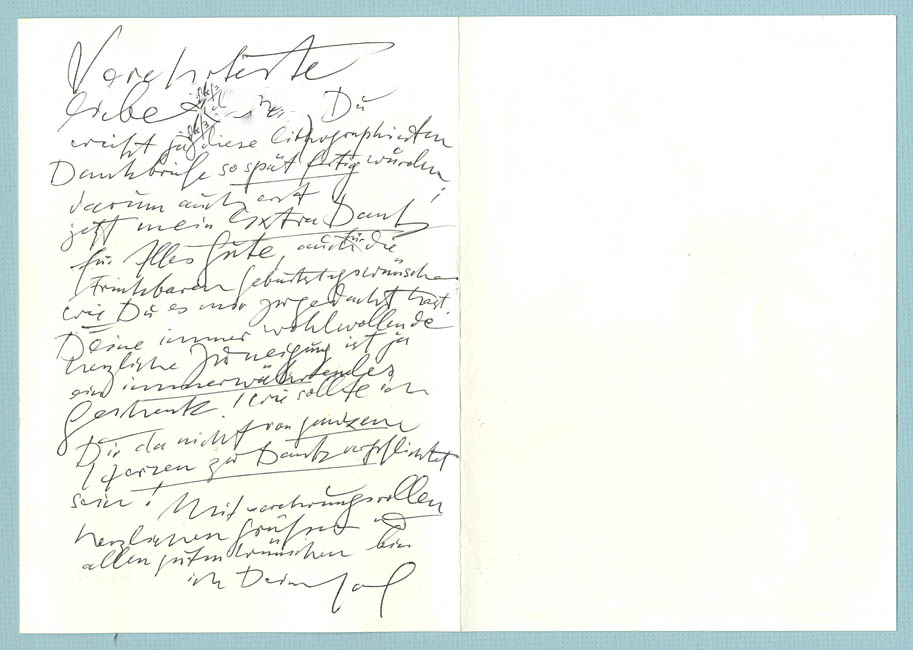 Verehrteste
liebe Du
weißt ja diese lithographierten
Dankbriefe so spät fertig würden,
darum auch erst
jetzt mein Extra Dank
für Alles Gute, auch für die
trinkbaren Geburtstagswünsche
wie Du es mir zugedacht hast.
Deine immer wohlwollende
herzliche Zuneigung ist ja
ein immerwährendes
Geschenk! wie sollte ich
Dir da nicht von ganzem
Herzen zu Dank verpflichtet
sein! Mit verehrungsvollen
herzlichen Grüßen und
allen guten Wünschen bin
ich Dein